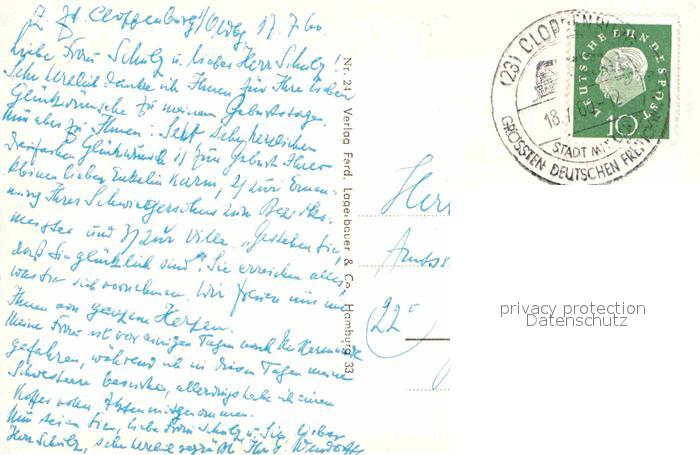 Z. Zt. Cloppenburg i/Oldbg 17.7.60.
Liebe Frau Schulz u. lieber Herr Schulz!
Sehr herzlich danke ich Ihnen für Ihre lieben
Glückwünsche zu meinem Geburtstage.
Nun aber zu Ihnen: Sehr herzlichen
dreifachen Glückwunsch 1) zur Geburt Ihrer
kleinen lieben Enkelin Karin, 2) zur Ernen-
nung Ihres Schwiegersohnes zum Bezirks-
meister und 3) zur Villa. "Gestehen Sie,
daß Sie glücklich sind". Sie erreichen alles,
was Sie sich vornehmen. Wir freuen uns mit
Ihnen von ganzem Herzen.
Meine Frau ist vor einigen Tagen nach
gefahren, während ich in diesen Tagen meine
Schwestern besuche, allerdings habe ich einen
Koffer voller Akten mitgenommen.
Nun seien Sie, liebe Frau Schulz u. Sie, lieber
Herr Schulz, sehr herzlich gegrüßt Ihr
Nr. 24 Verlag Ferd. Lagerbauer & Co., Hamburg 33
Herr
Amts
22c
(23) CLOPPENBURG
18.7.60
STADT MIT
GRÖSSTEN DEUTSCHEN
DEUTSCHE BUNDESPOST
10
privacy protection
Datenschutz